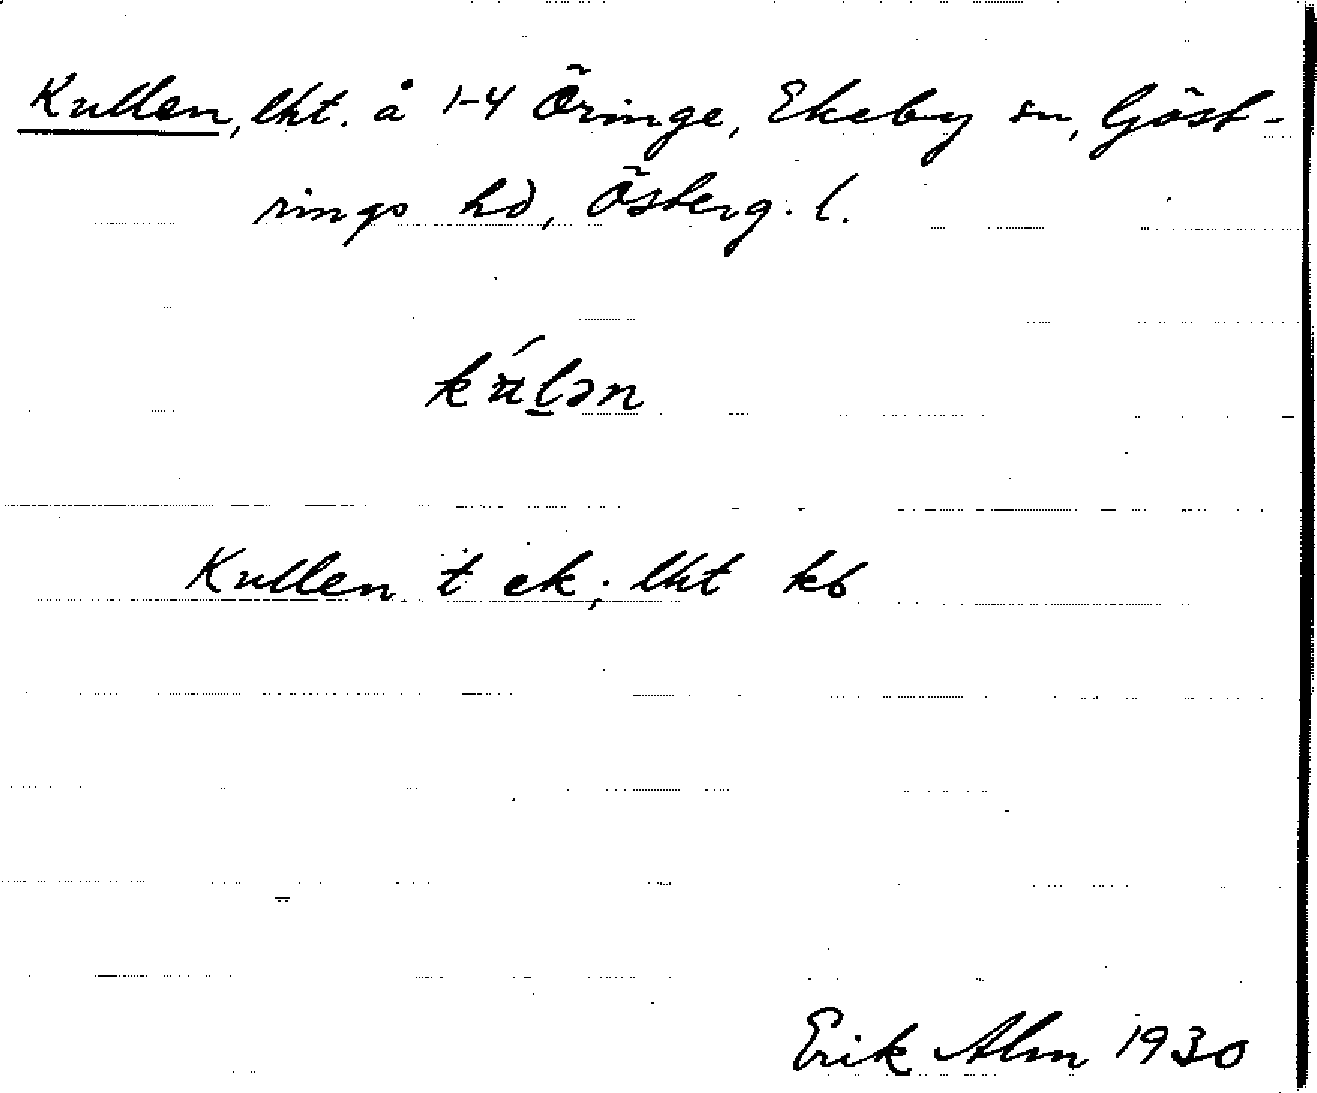 Kullen, lht. å 1-4 Öringe, Ekeby sn, Göst-
rings hd, Österg. l.
kúl̲ən
Kullen t ek; lht kb
Erik Alm 1930